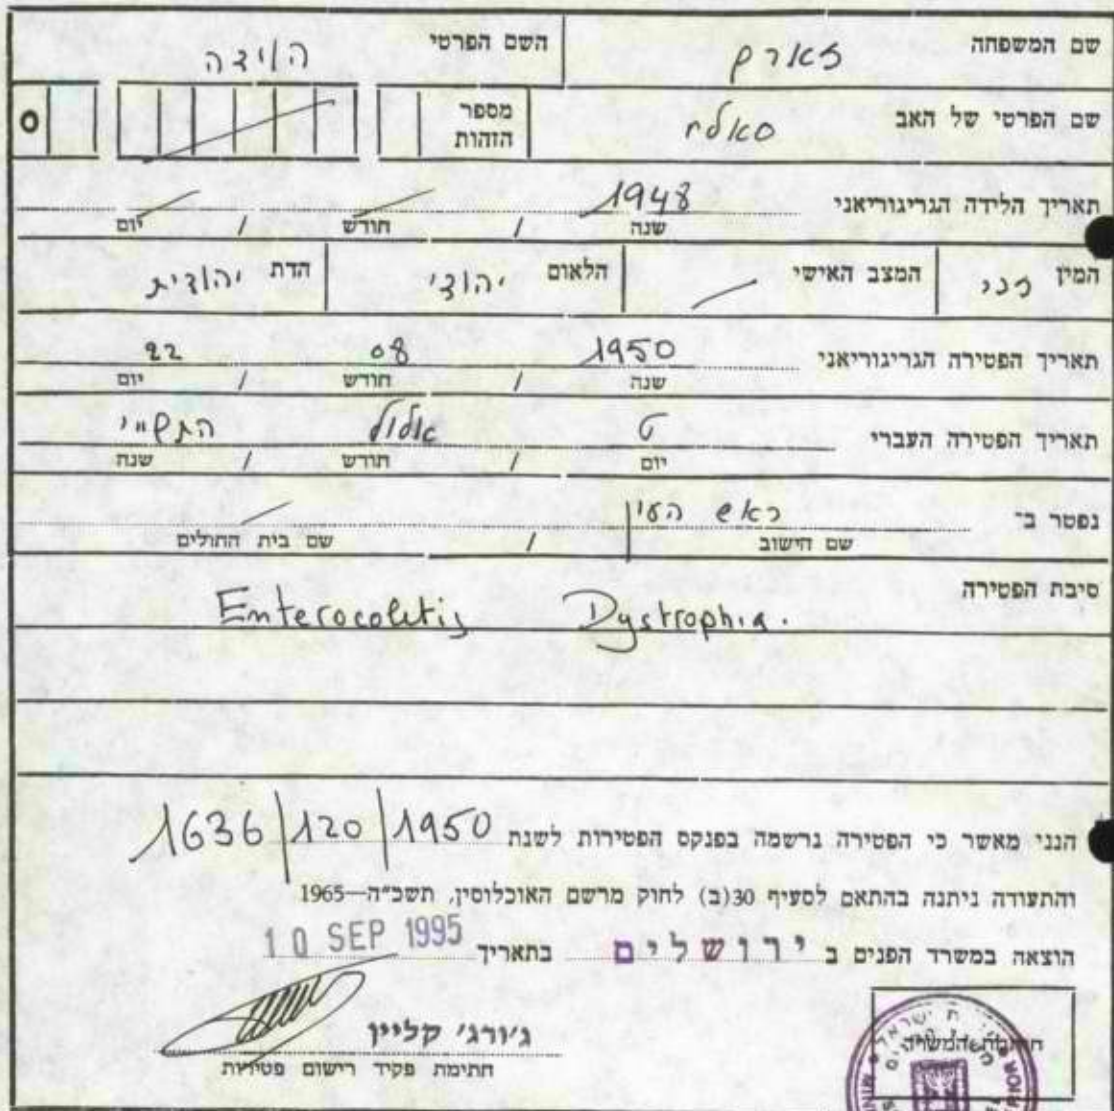 שם המשפחה השם הפרטי הוידה
שם הפרטי של האב סאלח מספר הזהות 0
תאריך הלידה הגריגוריאני 1948
שנה / חודש / יום
המין זכר המצב האישי הלאום יהודי הדת יהודית
תאריך הפטירה הגריגוריאני 1950 08 22
שנה / חודש / יום
תאריך הפטירה העברי ט אלול התש"י
יום / חודש / שנה
נפטר ב- ראש העין
שם הישוב / שם בית החולים
סיבת הפטירה
Enterocolitis Dystrophia.
הנני מאשר כי הפטירה נרשמה בפנקס הפטירות לשנת 1636/120/1950
והתעודה ניתנה בהתאם לסעיף 30(ב) לחוק מרשם האוכלוסין, תשכ"ה—1965
הוצאה במשרד הפנים ב ירושלים בתאריך 10 SEP 1995
ג'ורג' קליין
חתימת פקיד רישום פטירות
חותמת המשרד